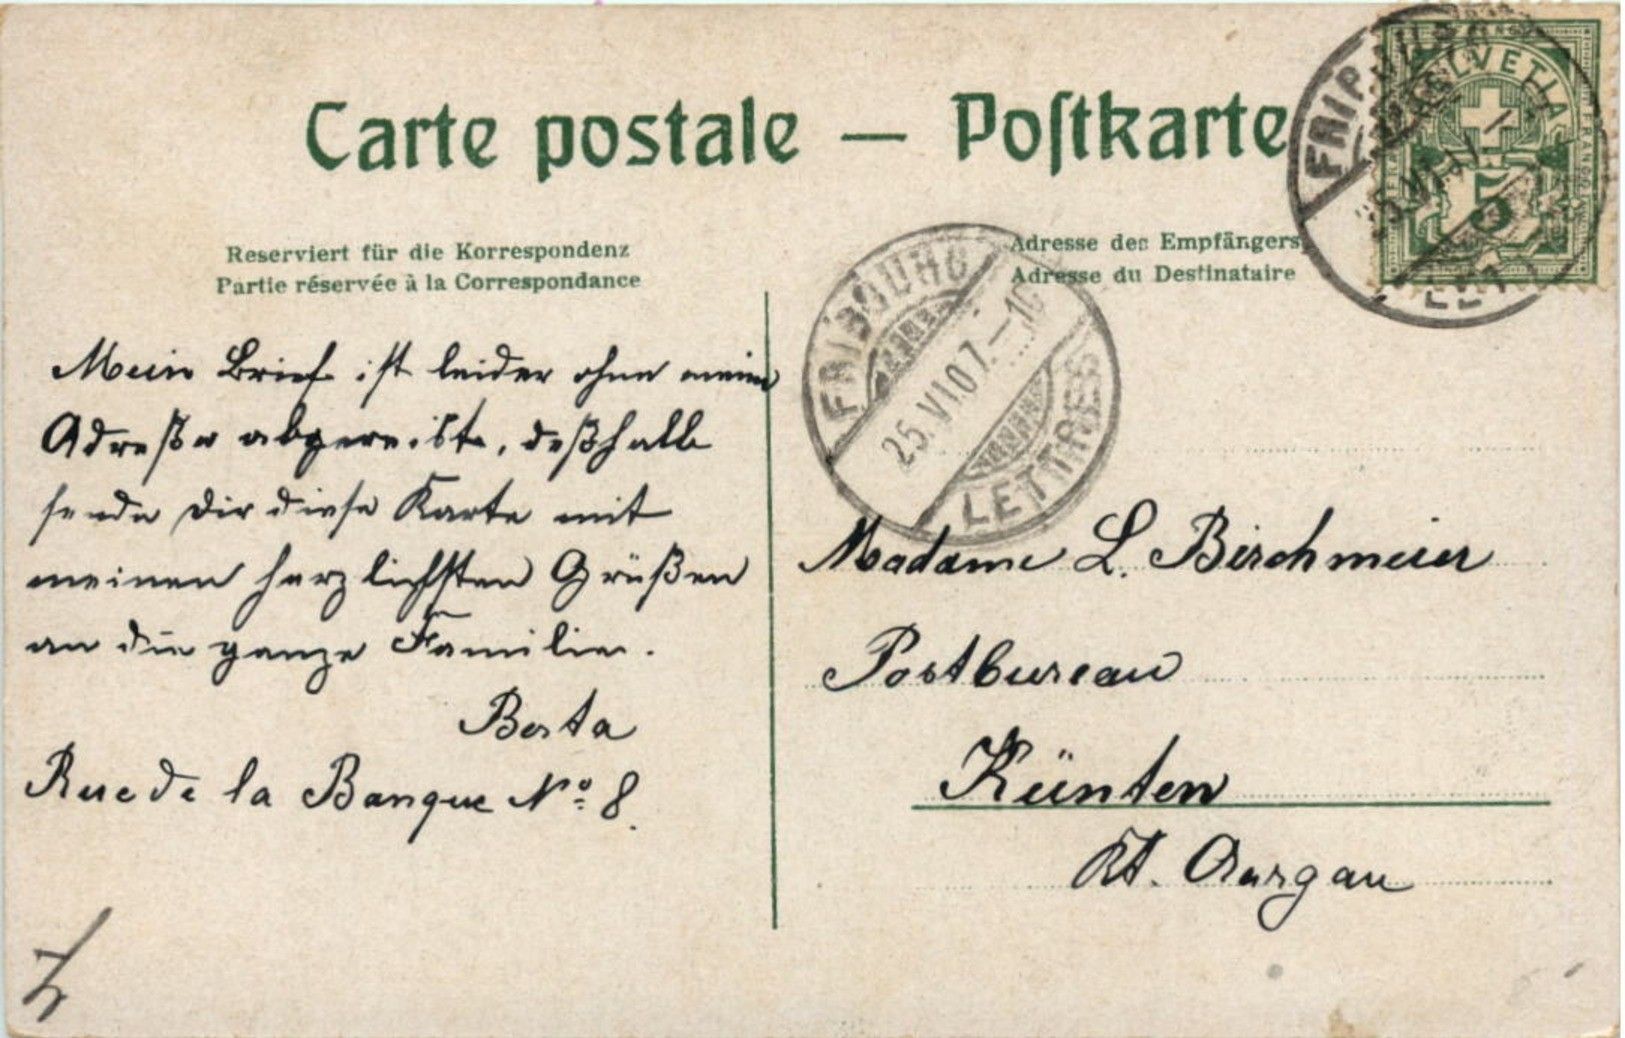 Carte postale — Postkarte
Reserviert für die Korrespondenz
Partie réservée à la Correspondance
Adresse des Empfängers
Adresse du Destinataire
HELVETIA
5
FRIBOURG
25.VI.07.—10
LETTRES
Mein Brief ist leider ohne meine
Adreße abgereist, deßhalb
sende Dir diese Karte mit
meinen herzlichsten Grüßen
an die ganze Familie.
Berta
Rue de la Banque No. 8.
Madame L. Birchmeier
Postbureau
Künten
Kt. Aargau